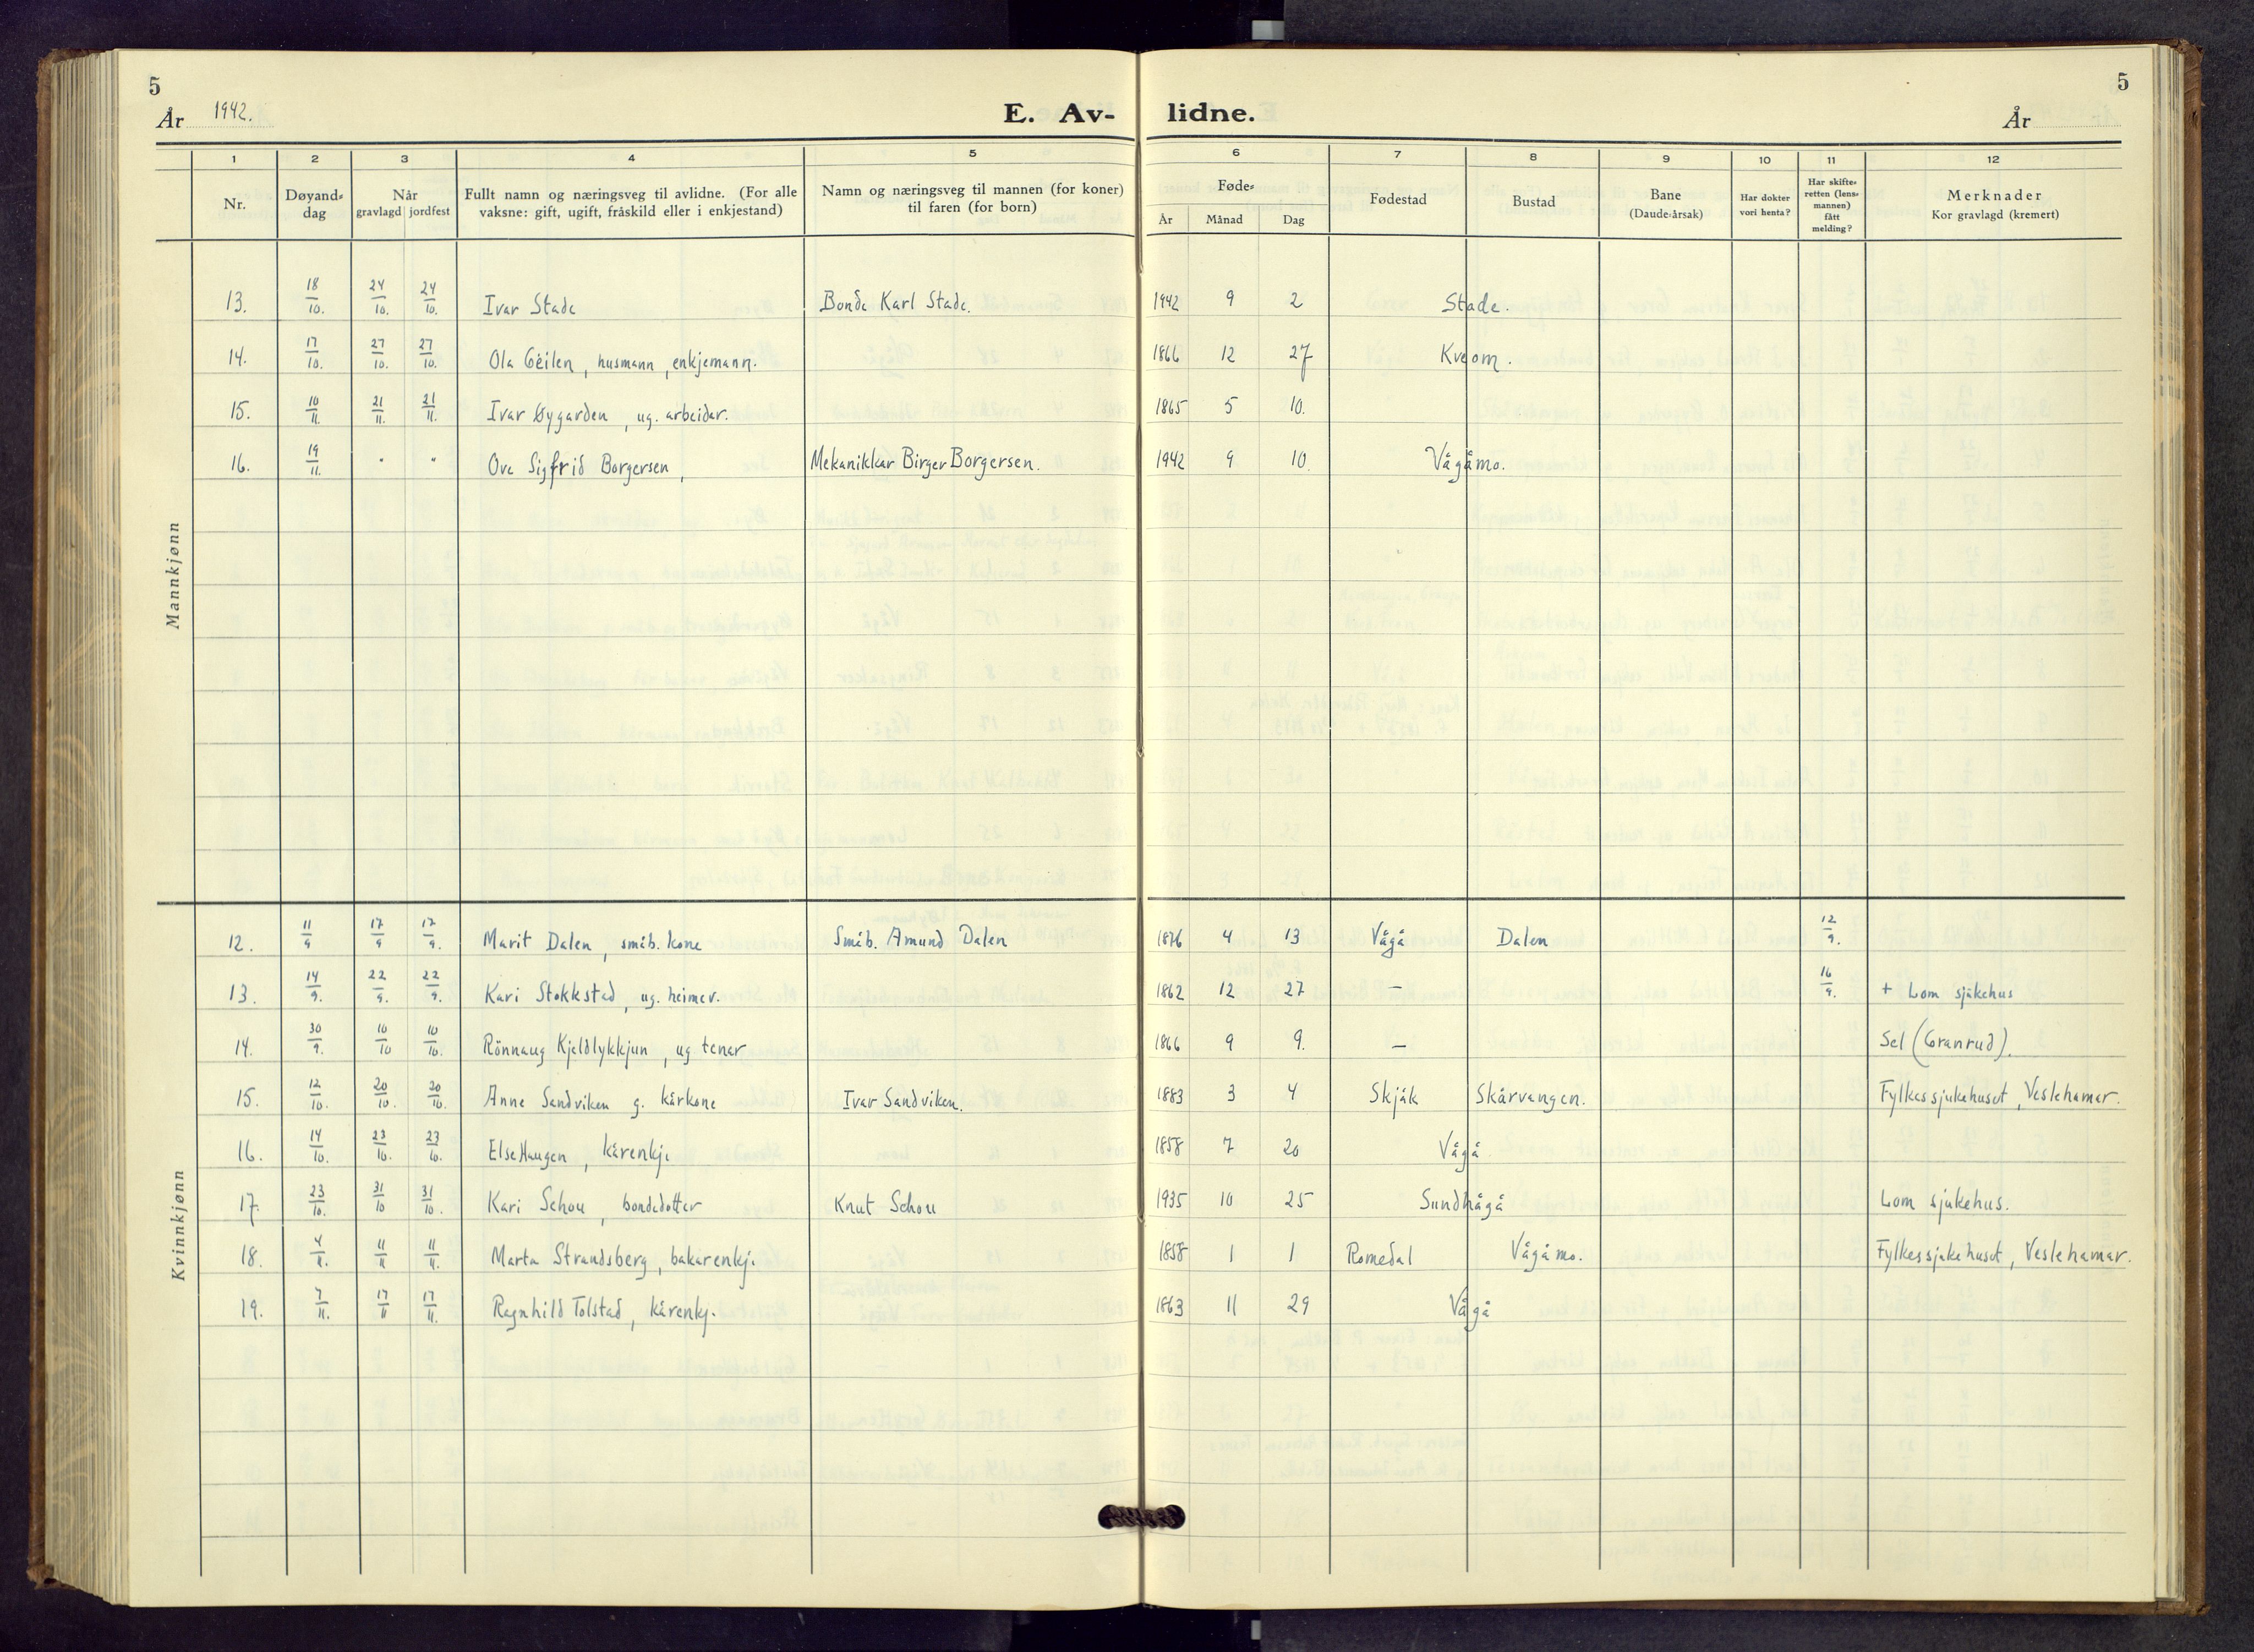 5
År 1942.
E. Av-
lidne.
År
5
1 2 3 4 5 6 7 8 9 10 11 12
Nr.
Døyand-
dag
Når
gravlagd jordfest
Fullt namn og næringsveg til avlidne. (For alle
vaksne: gift, ugift, fråskild eller i enkjestand)
Namn og næringsveg til mannen (for koner)
til faren (for born)
Føde-
År Månad Dag
Fødestad
Bustad
Bane
(Daude-årsak)
Har dokter
vori henta?
Har skifte-
retten (lens-
mannen)
fått
melding?
Merknader
Kor gravlagd (kremert)
Mannkjønn
13. 18/10. 24/10. 24/10. Ivar Stade Bonde Karl Stade. 1942 9 2 Stade.
14. 17/10. 27/10. 27/10. Ola Geilen, husmann, enkjemann. 1866 12 27 Kveom.
15. 10/11. 21/11. 21/11. Ivar Øygarden, ug. arbeidar. 1865 5 10.
16. 19/11. " " Ove Sigfrid Borgersen, Mekanikkar Birger Borgersen. 1942 9 10. Vågåmo.
Kvinnkjønn
12. 11/9 17/9 17/9. Marit Dalen, småb. kone Småb. Amund Dalen 1876 4 13 Vågå Dalen 12/9.
13. 14/9. 22/9. 22/9. Kari Stokkstad, ug. heimev. 1862 12 27 — 16/9. + Lom sjukehus
14. 30/9. 10/10 10/10. Rönnaug Kjeldlykkjun, ug tenar 1866 9 9. — Sel (Granrud).
15. 12/10. 20/10. 20/10. Anne Sandviken g. kårkone Ivar Sandviken. 1883 3 4 Skjåk Skårvangen. Fylkessjukehuset, Veslehamar.
16. 14/10. 23/10. 23/10. Else Haugen, kårenkj. 1858 7 20 Vågå
17. 23/10. 31/10 31/10. Kari Schou, bondedotter Knut Schou 1935 10 25 Sundhågå Lom sjukehus.
18. 4/11. 11/11 11/11. Marta Strandsberg, bakarenkj. 1858 1 1 Romedal Vågåmo. Fylkessjukehuset, Veslehamar.
19. 7/11. 17/11 17/11. Ragnhild Tolstad, kårenkj. 1863 11 29 Vågå